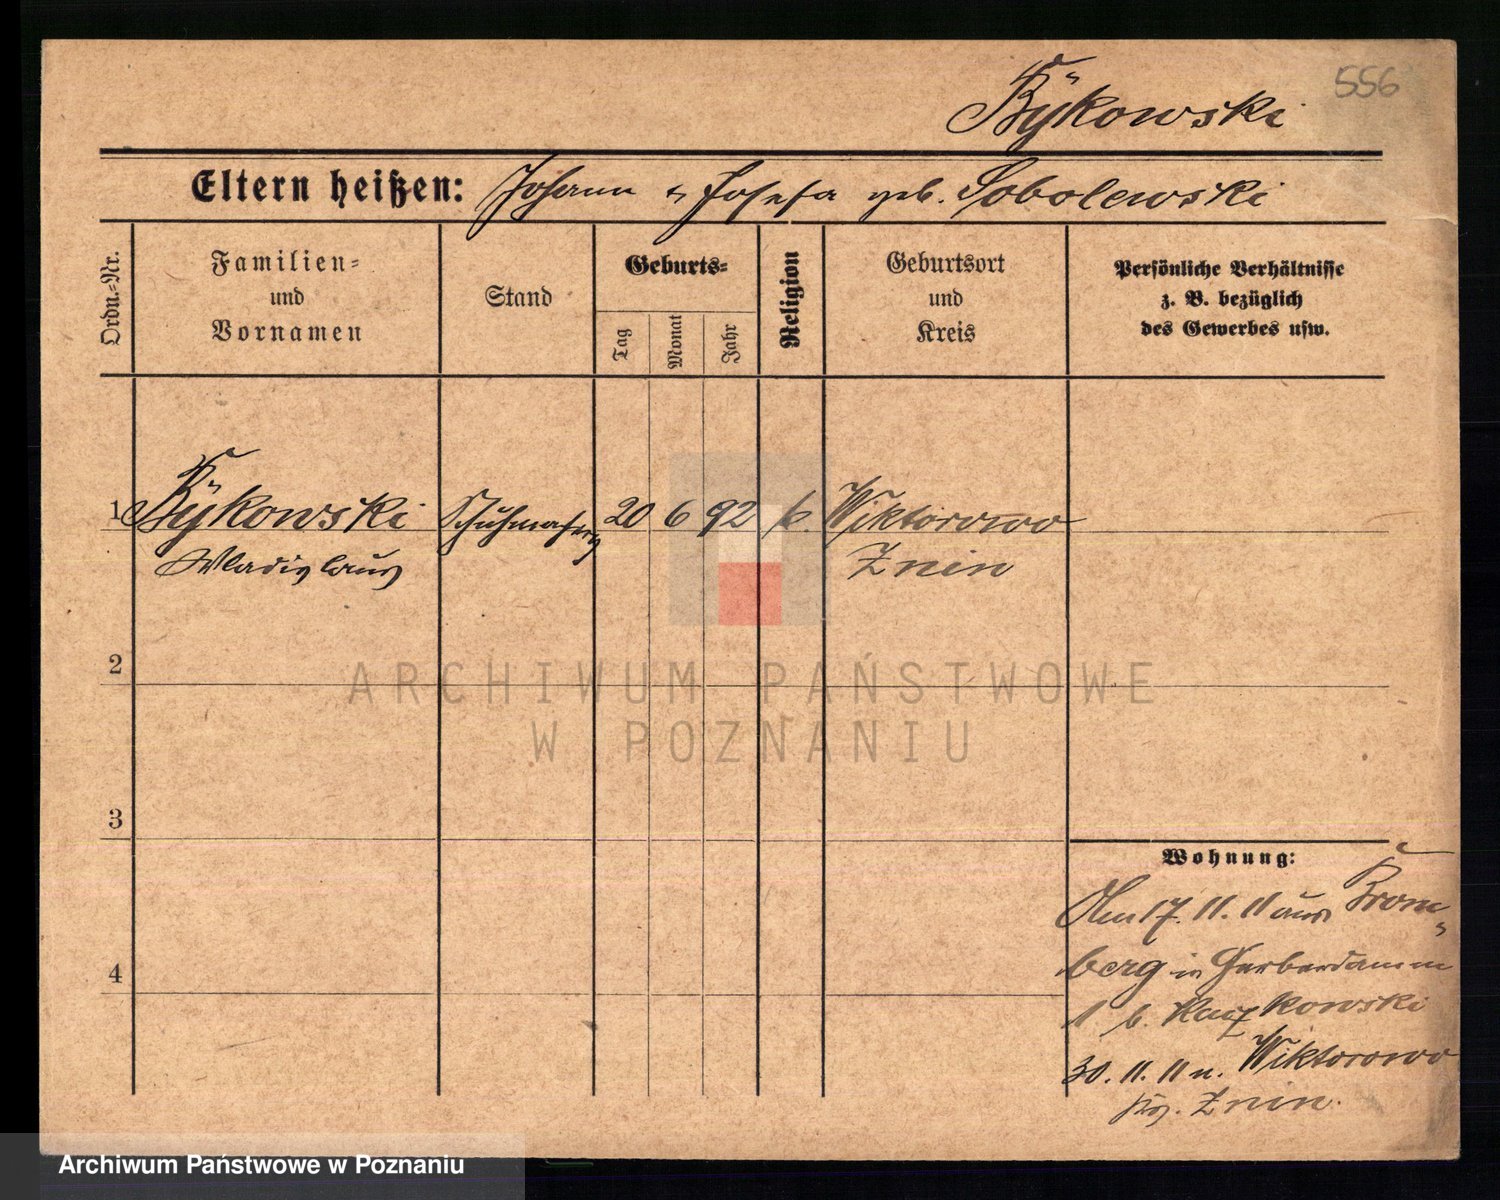 556
Bÿkowski
Eltern heißen: Johann u Josefa geb. Sobolewski
Ordn.-Nr.
Familien-
und
Vornamen
Stand
Geburts-
Tag
Monat
Jahr
Religion
Geburtsort
und
Kreis
Persönliche Verhältnisse
z. B. bezüglich
des Gewerbes usw.
1 Bÿkowski Schuhmacher 20 6 92 k. Wiktorowo
Wladislaus Znin
2
ARCHIWUM PAŃSTWOWE
W POZNANIU
3
Wohnung:
Am 17. 11. 11 aus Brom-
berg in Gerberdamm
4
1 b. Kowski
30. 11. 11 n. Wiktorowo
Znin.
Archiwum Państwowe w Poznaniu